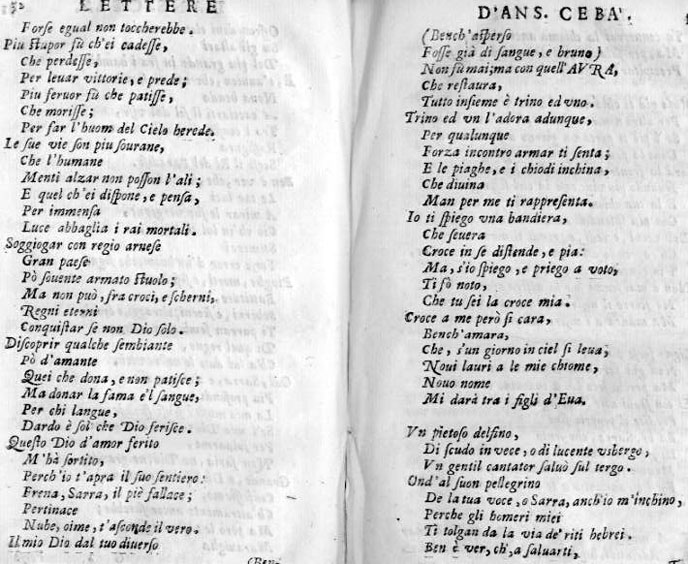 52 LETTERE
Forse egual non toccherebbe.
Piu stupor fù ch'ei cadesse,
Che perdesse,
Per leuar vittorie, e prede;
Piu feruor fù che patisse,
Che morisse;
Per far l'huom del Cielo herede.
Le sue vie son piu sourane,
Che l'humane
Menti alzar non posson l'ali;
E quel ch'ei dispone, e pensa,
Per immensa
Luce abbaglia i rai mortali.
Soggiogar con regio arnese
Gran paese
Pò souente armato stuolo;
Ma non può, fra croci, e scherni,
Regni eterni
Conquistar se non Dio solo.
Discoprir qualche sembiante
Pò d'amante
Quei che dona, e non patisce;
Ma donar la fama e'l sangue,
Per chi langue,
Dardo è sol che Dio ferisce.
Questo Dio d'amor ferito
M'hà sortito,
Perch'io t'apra il suo sentiero:
Frena, Sarra, il piè fallace;
Pertinace
Nube, oime, t'asconde il vero.
Il mio Dio dal tuo diuerso
(Ben-
D'ANS. CEBA'.
(Bench'asperso
Fosse già di sangue, e bruno)
Non fù mai; ma con quell'AVRA,
Che restaura,
Tutto insieme è trino ed vno.
Trino ed vn l'adora adunque,
Per qualunque
Forza incontro armar ti senta;
E le piaghe, e i chiodi inchina,
Che diuina
Man per me ti rappresenta.
Io ti spiego vna bandiera,
Che seuera
Croce in se distende, e pia:
Ma, s'io spiego, e priego a voto,
Ti fò noto,
Che tu sei la croce mia.
Croce a me però si cara,
Bench'amara,
Che, s'un giorno in ciel si leua,
Noui lauri a le mie chiome,
Nouo nome
Mi darà tra i figli d'Eua.
Vn pietoso delfino,
Di scudo in vece, o di lucente vsbergo,
Vn gentil cantator saluò sul tergo.
Ond'al suon pellegrino
De la tua voce, o Sarra, anch'io m'inchino,
Perche gli homeri miei
Ti tolgan da la via de' riti hebrei.
Ben è ver, ch', a saluarti,